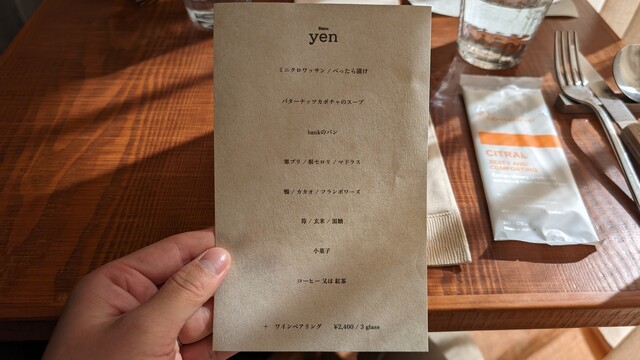 yen
ミニクロワッサン / べったら漬け
バターナッツカボチャのスープ
bankのパン
寒ブリ / 根セロリ / マドラス
鴨 / カカオ / フランボワーズ
苺 / 玄米 / 黒糖
小菓子
コーヒー 又は 紅茶
+ ワインペアリング ¥2,400 / 3 glass
CITRAL